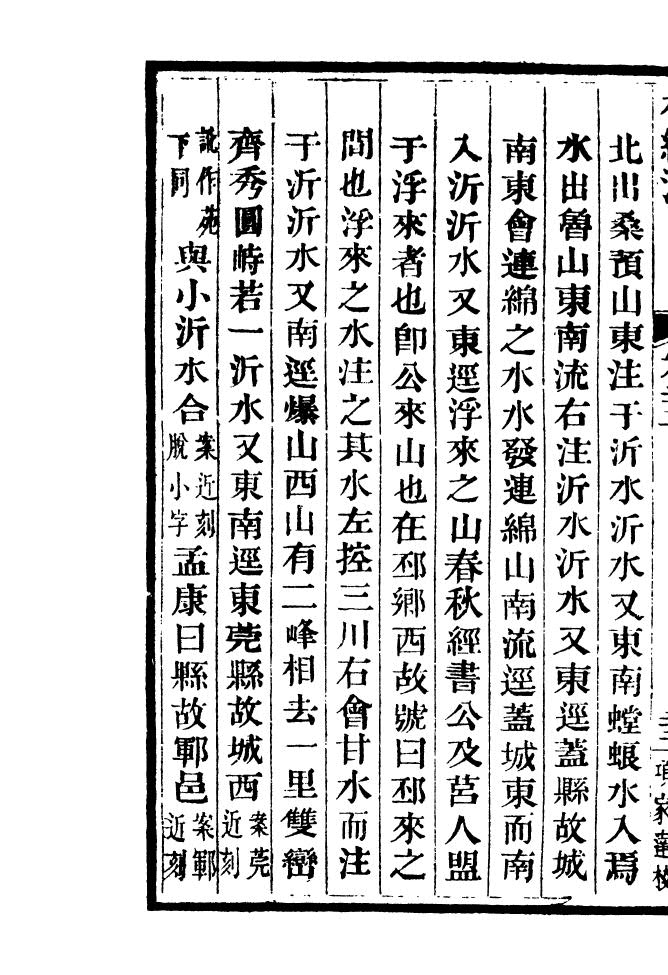 北出桑預山東注于沂水沂水又東南螳蜋水入焉
水出魯山東南流右注沂水沂水又東逕蓋縣故城
南東會連綿之水水發連綿山南流逕蓋城東而南
入沂沂水又東逕浮來之山春秋經書公及莒人盟
于浮來者也卽公來山也在邳鄉西故號曰邳來之
間也浮來之水注之其水左控三川右會甘水而注
于沂沂水又南逕爆山西山有二峰相去一里雙巒
齊秀圓峙若一沂水又東南逕東莞縣故城西案莞近刻
訛作菀下同與小沂水合案近刻脫小字孟康曰縣故鄆邑案鄆近刻